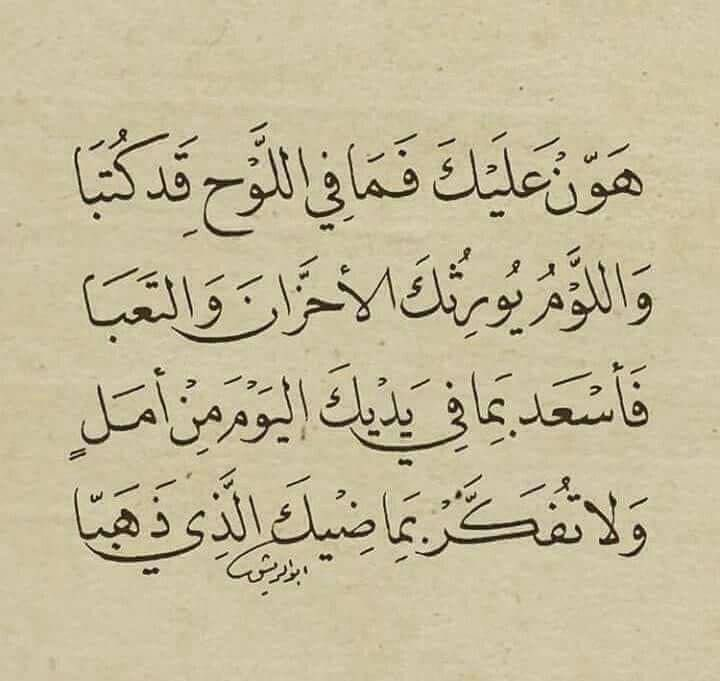 هَوّنْ عَلَيْكَ فَمَا فِي اللَّوْحِ قَد كُتبَا
وَاللَّوْمُ يُورِثُكَ الأحزَانَ وَالتعَبَا
فَأسْعَد بِمِا فِي يَدْيكَ اليَوْمَ مِنْ أمَلٍ
وَلا تُفَكَّرْ بِمِاضِيْكَ الَّذِي ذَهَبّا
ابوالريش